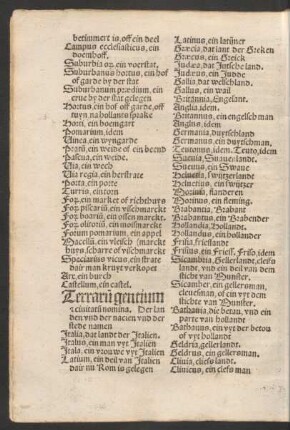 betumert is, off ein deel
Campus ecclesiasticus, ein
doemhoff.
Suburbia oꝝ, ein voerstat,
Suburbanus hortus, ein hof
of garde by der stat
Suburbanum prædium, ein
erue by der stat gelegen
Hortus, ein hof off garde, off
tuyn, na hollants sprake
Hortꝰ, ein boemgart
Pomarium, idem
Vinea, ein wyngarde
Pratū, ein weide of ein bemd
Pascua, ein weide.
Via, ein wech
Via regia, ein herstrate
Porta, ein porte
Turris, ein torn
Foꝝ, ein market of richthuys
Foꝝ piscariū, ein vischmarckt
Foꝝ boariū, ein ossen marckt.
Foꝝ olitoriū, ein moesmarckt
Forum pomarium, ein appel
Macellū, ein vleisch (marckt
huys, scharre of vischmarckt
Speciarius vicus, ein strate
dair man kruyt verkopet
Arx, ein burch
Castellum, ein castel.
Terrarū gentium
et ciuitatū nomina. Der lan
den vnd der nacien vnd der
stede namen
Italia, dat landt der Italien.
Italus, ein man vyt Italien
Itala, ein vrouwe vyt Italien
Latium, ein deil van Italien
dair nu Rom is gelegen
Latinus, ein latiner
Græcia, dat lant der Greken
Græcus, ein Greick
Judæa, dat Jutsche land.
Judæus, ein Judde
Gallia, dat welschland.
Gallus, ein wail
Britannia, Engelant.
Anglia, idem.
Britannus, ein engelsch man
Anglus, idem
Germania, duytschland
Germanus, ein duytschman,
Teutonus, idem. Teuto, idem
Sueuia, Swauerlandt.
Sueuus, ein Swaue
Heluetia, switzerlandt
Heluetius, ein switzer
Morinia, flanderen
Morinus, ein fleming.
Brabantia, Brabant
Brabantus, ein Brabender
Hollandia, Hollandt.
Hollandus, ein hollander
Frisia, frieslandt
Frisius, ein Frieß. Friso, idem
Sicambria, Gellerlande, clefs
landt, vnd ein deil van dem
stichte van Munster.
Sicamber, ein gellersman,
cleuesman, of ein vyt dem
stichte van Munster.
Bathauia, die betau, vnd ein
parte van hollandt
Bathauus, ein vyt der betou
of vyt hollandt
Geldria, gellerlandt.
Geldrus, ein gellersman.
Cliuia, cliefs landt
Cliuicus, ein cliefs man